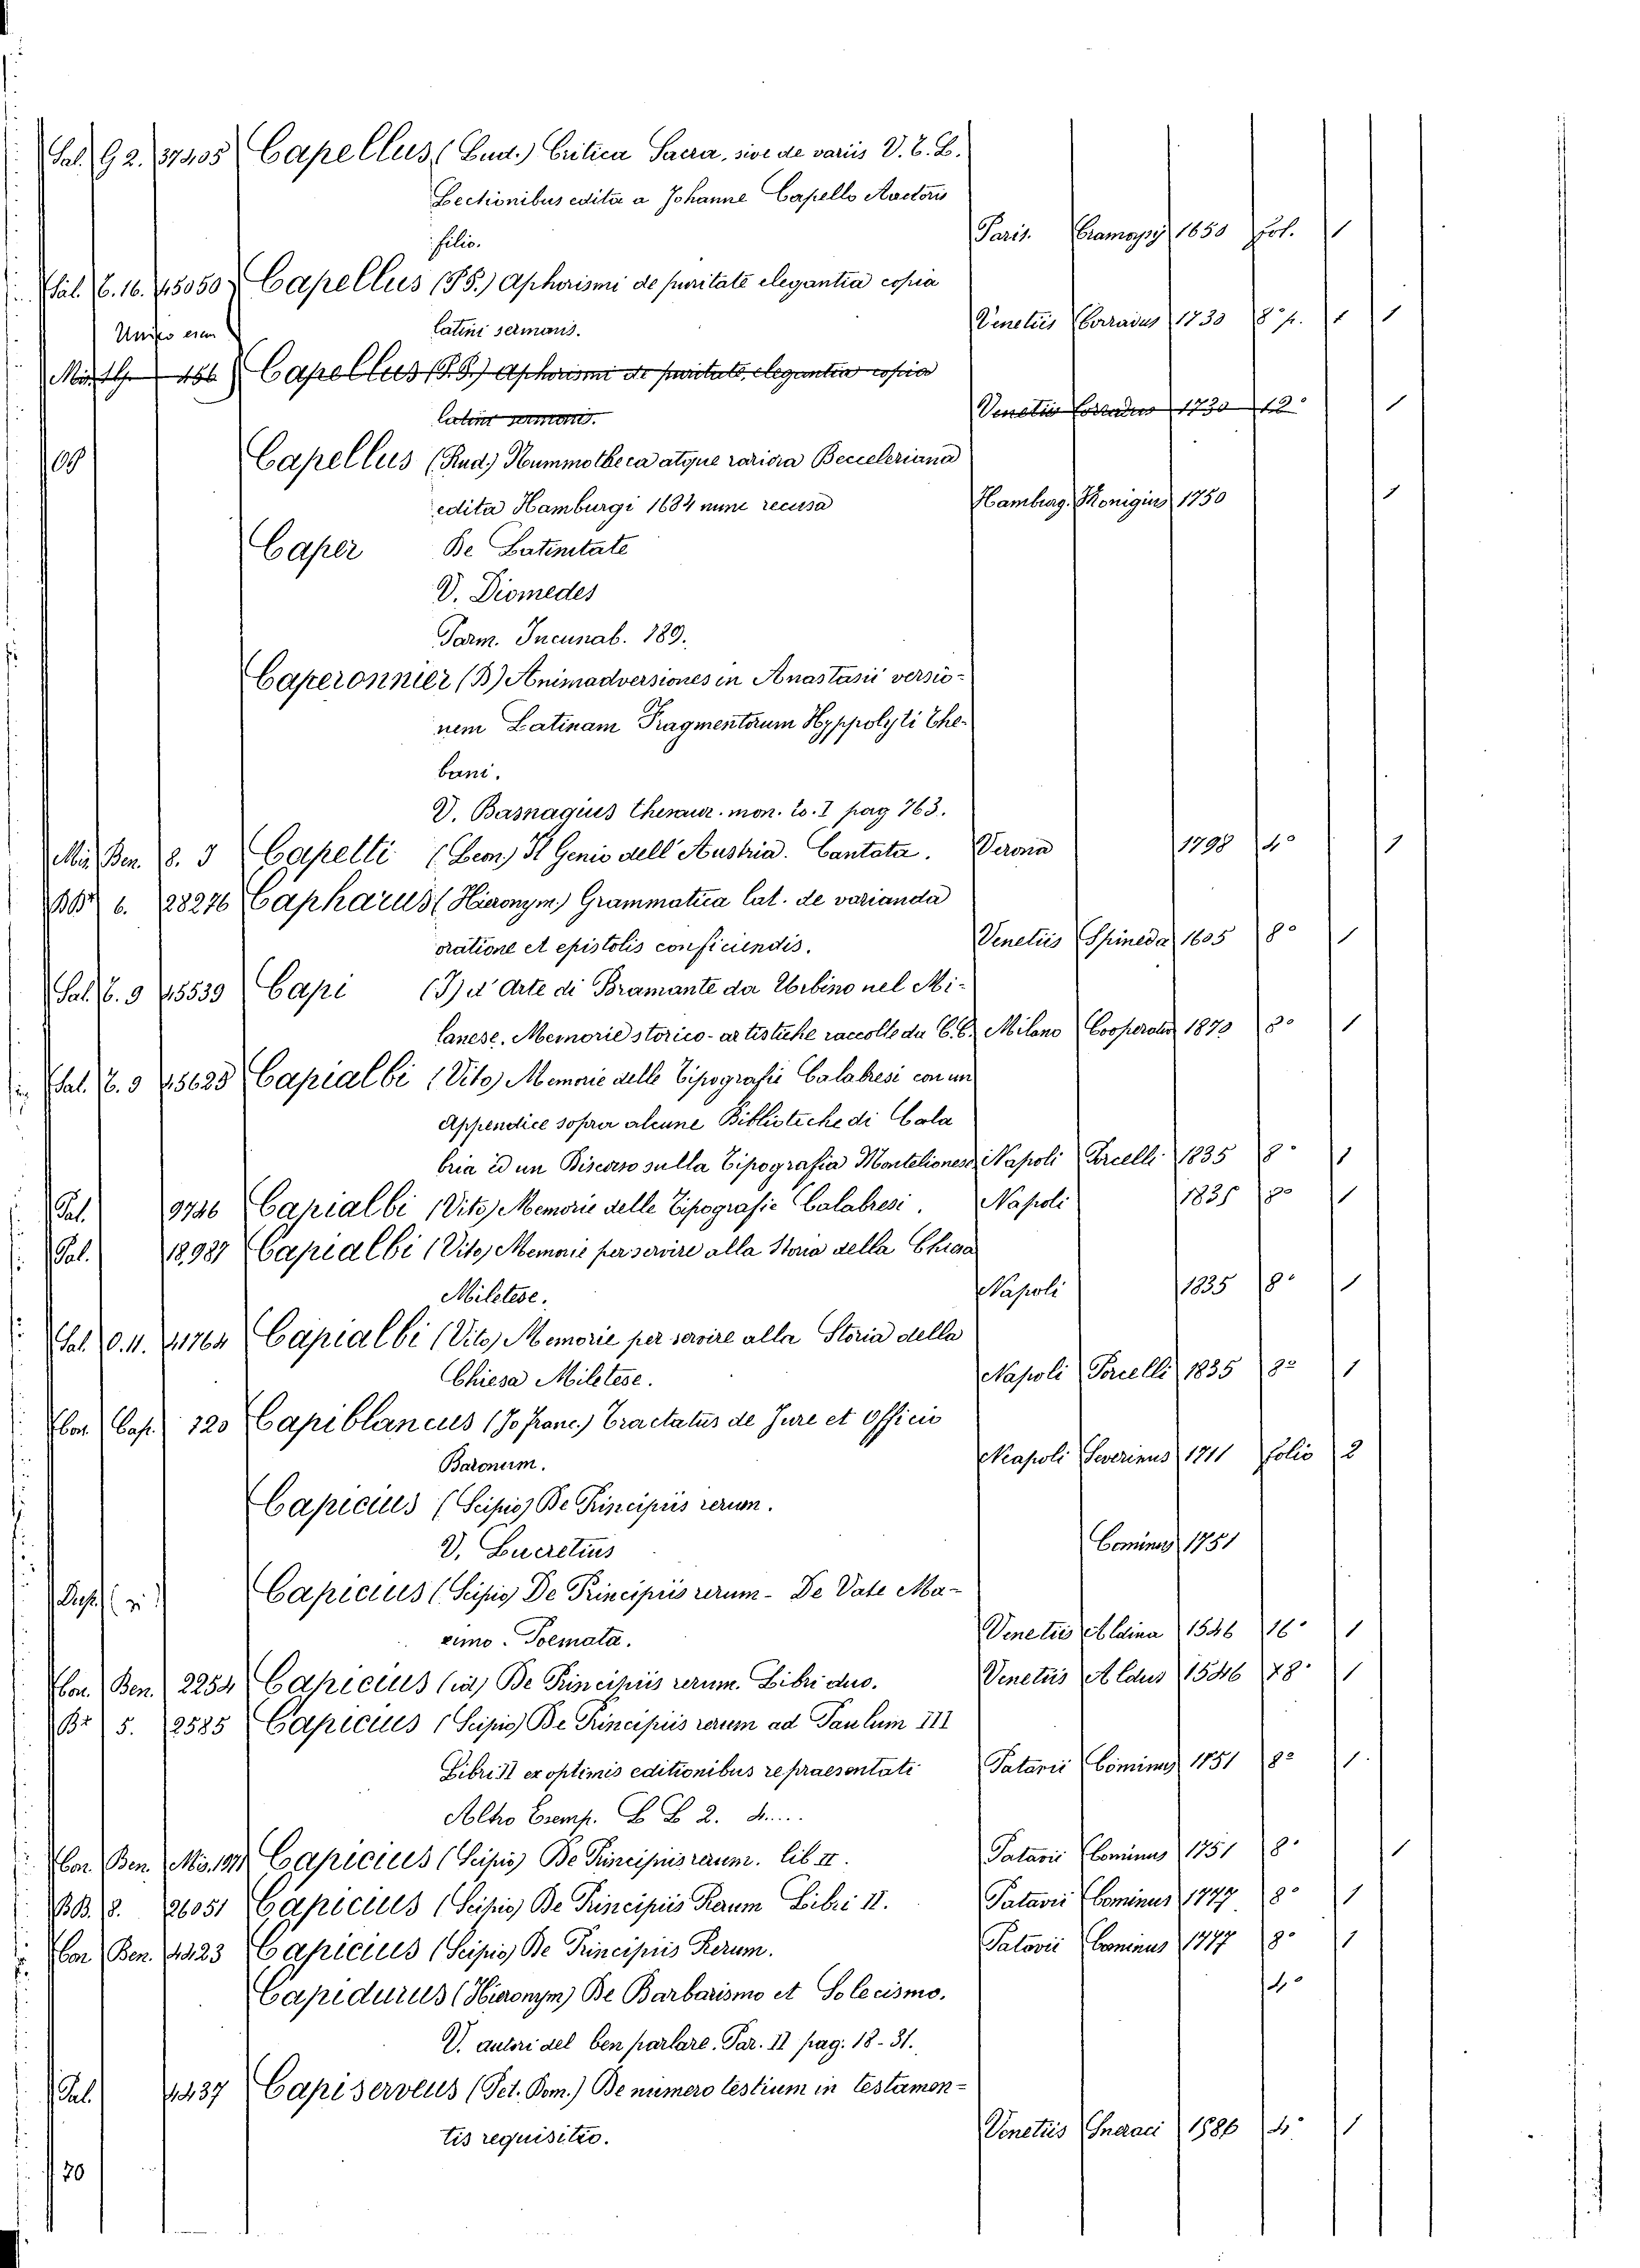 Sal. G 2. 37405 Capellus (Lud.) Critica Sacra, sive de variis V. T. L.
Lectionibus edita a Johanne Capello Auctoris
filio. Paris. Cramoysy 1650 fol. 1
Sal. C. 16. 45050 Capellus (P.S.) Aphorismi de puritate elegantia copia
latini sermonis. Venetiis Corradus 1733 8° p. 1 1
456 Capellus (P.S.) Aphorismi de puritate, elegantia copia
latini sermonis. Venetiis Corradus 1730 12° 1
109 Capellus (Rud.) Nummotheca atque rariora Becceleriana
edita Hamburgi 1684 nunc recusa Hamburg. Konigius 1750 1
Caper De Latinitate
V. Diomedes
Parm. Incunab. 189.
Caperonnier (B) Animadversiones in Anastasii versio-
nem Latinam Fragmentorum Hyppolyti The-
bani.
V. Basnagius Thesaur. mon. to. I pag 763.
Mis. Ben. 8. J Capelli (Leon.) Il Genio dell' Austria. Cantata. Verona 1798 4° 1
BBr 6. 28276 Capharus (Hieronym.) Grammatica lat. de varianda
oratione et epistolis conficiendis. Venetiis Spineda 1605 8° 1
Sal. C. 9 45539 Capi (J) d' Arte di Bramante da Urbino nel Mi-
lanese. Memorie storico-artistiche raccolte da C. C. Milano Cooperativ 1870 8° 1
Sal. C. 9 45623 Capialbi (Vito) Memorie delle Tipografie Calabresi con un
Appendice sopra alcune Biblioteche di Cala
bria ed un Discorso sulla Tipografia Monteleonese Napoli Porcelli 1835 8° 1
Sal. 9746 Capialbi (Vito) Memorie delle Tipografie Calabresi. Napoli 1835 8° 1
Sal. 18,987 Capialbi (Vito) Memorie per servire alla Storia della Chiesa
Miletese. Napoli 1835 8° 1
Sal. O. 11. 41764 Capialbi (Vito) Memorie per servire alla Storia della
Chiesa Miletese. Napoli Porcelli 1835 8° 1
Cor. Cap. 120 Capiblancus (Jo franc.) Tractatus de Jure et Officio
Baronum. Neapoli Severinus 1711 folio 2
Capicius (Scipio) De Principiis rerum.
V. Lucretius Cominus 1751
Capicius (Scipio) De Principiis rerum - De Vate Ma-
ximo. Poemata. Venetiis Aldina 1546 16° 1
Cor. Ben. 2254 Capicius (id) De Principiis rerum. Libri duo. Venetiis Aldus 1546 8° 1
Br 5. 2585 Capicius (Scipio) De Principiis rerum ad Paulum III
Libri II ex optimis editionibus repraesentati Patavii Cominus 1751 8° 1
Altro Esemp. L L 2. 4....
Cor. Ben. Mis. 197 Capicius (Scipio) De Principiis rerum. lib. II. Patavii Cominus 1751 8° 1
BB. 8. 26051 Capicius (Scipio) De Principiis Rerum Libri II. Patavii Cominus 1747 8° 1
Cor Ben. 4423 Capicius (Scipio) De Principiis Rerum. Patavii Cominus 1747 8° 1
Capidurus (Hieronym) De Barbarismo et Solecismo. 4°
V. autori del ben parlare. Par. II pag. 18-31.
Sal. 4437 Capiserveus (Pet. Pom.) De numero testium in testamen-
tis requisitio. Venetiis Gueraci 1586 4° 1
70